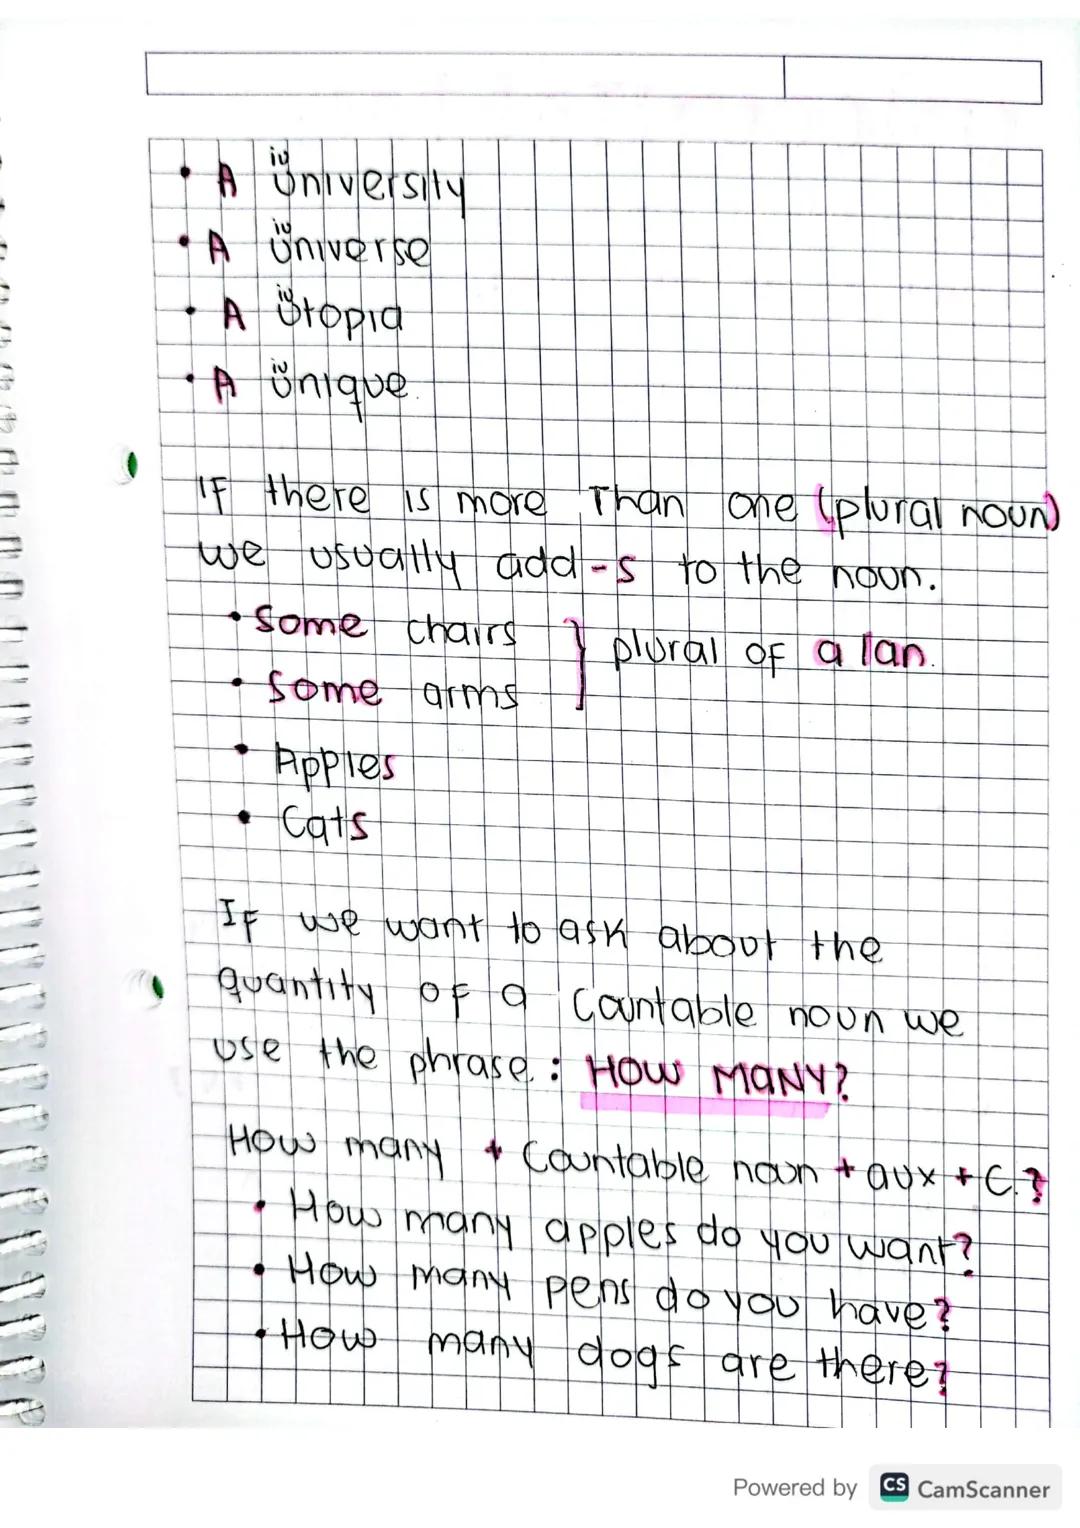 • A University
iu
• A Universe
iu
• A Utopia
iu
• A Unique.
iu
IF there is more Than one (plural noun)
we usually add -s to the noun.
• Some chairs
• Some arms
} plural of a/an.
• Apples
• Cats
If we want to ask about the
quantity of a Countable noun we
use the phrase: HOW MANY?
How many + Countable noun + aux + C.?
• How many apples do you want?
• How many pens do you have?
• How many dogs are there?
Powered by CS CamScanner